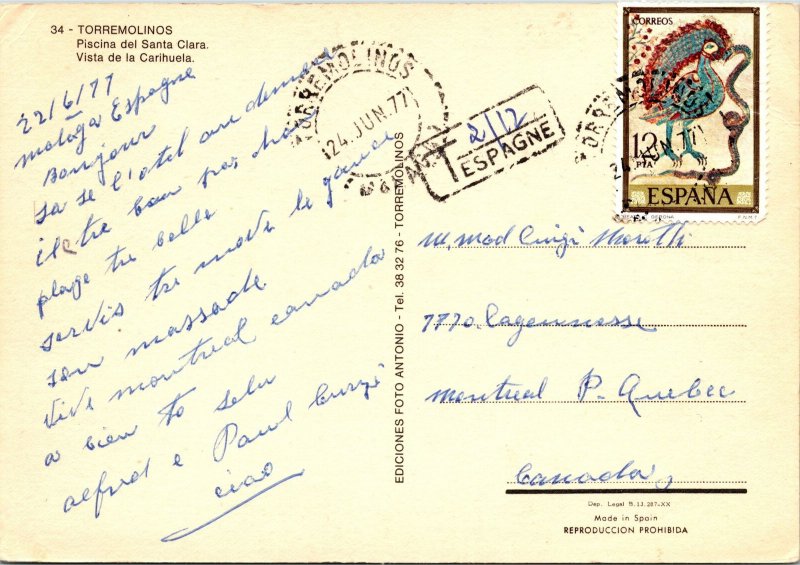 34 - TORREMOLINOS
Piscina del Santa Clara.
Vista de la Carihuela.
22/6/77
malaga Espagne
Bonjour
sa se l'otel are demore
il tre bon par
plage tre belle
servis tre move le
son massade
vive montreal canada
a bien to salu
alfred e Paul Luigi
ciao
EDICIONES FOTO ANTONIO - Tel. 38 32 76 - TORREMOLINOS
TORREMOLINOS
24.JUN.77
MALAGA
T 2/12
ESPAGNE
CORREOS
12
PTA
ESPAÑA
GERONA
F.N.M.T.
TORREMOLINOS
24.JUN.77
M, Mad Luigi Moretti
7770 Lageunesse
Montreal P- Quebec
Canada,
Dep. Legal B.
Made in Spain
REPRODUCCION PROHIBIDA